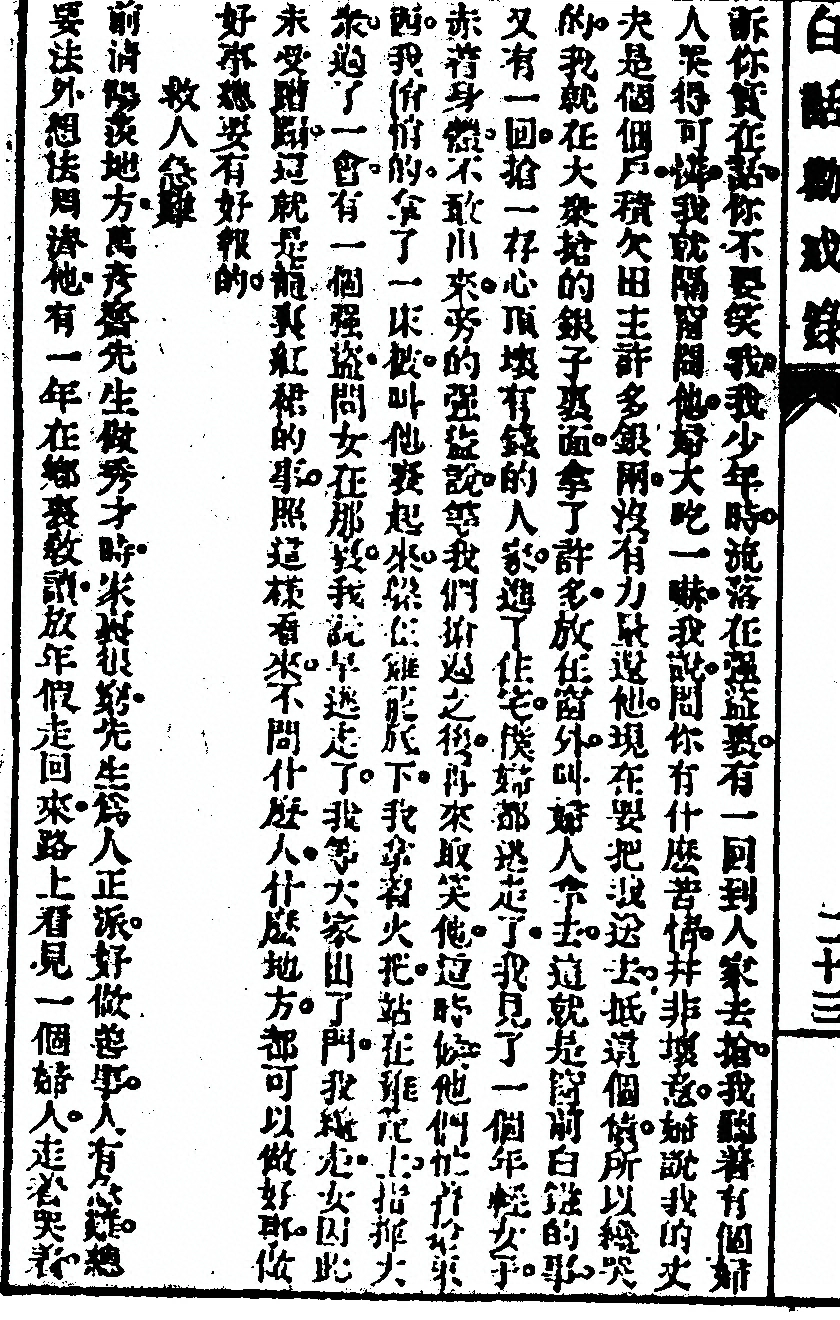 白話勸戒錄
二十三
訴你實在話你不要笑我我少年時流落在强盜裏有一回到人家去搶我聽著有個婦
人哭得可憐我就隔窗問他婦大吃一嚇我說問你有什麽苦情幷非壞意婦說我的丈
夫是個佃戶積欠田主許多銀兩沒有力量還他現在要把我送去抵這個債所以纔哭
的我就在大衆搶的銀子裏面拿了許多放在窗外叫婦人拿去這就是窗前白鏹的事
又有一回搶一存心頂壞有錢的人家進了住宅僕婦都逃走了我見了一個年輕女子
赤着身體不敢出來旁的强盜說等我們搶過之後再來取笑他這時候他們忙着搶東
西我悄悄的拿了一床被叫他裹起來躲在雞籠底下我拿着火把站在雞籠上指揮大
衆過了一會有一個强盜問女在那裏我說早逃走了我等大家出了門我纔走女因此
未受蹧蹋這就是籠裏紅裙的事照這樣看來不問什麽人什麽地方都可以做好事做
好事總要有好報的
救人急難
前淸陽羨地方萬彥齋先生做秀才時家裏很窮先生爲人正派好做善事人有急難總
要法外想法周濟他有一年在鄉裏敎讀放年假走回來路上看見一個婦人走着哭着